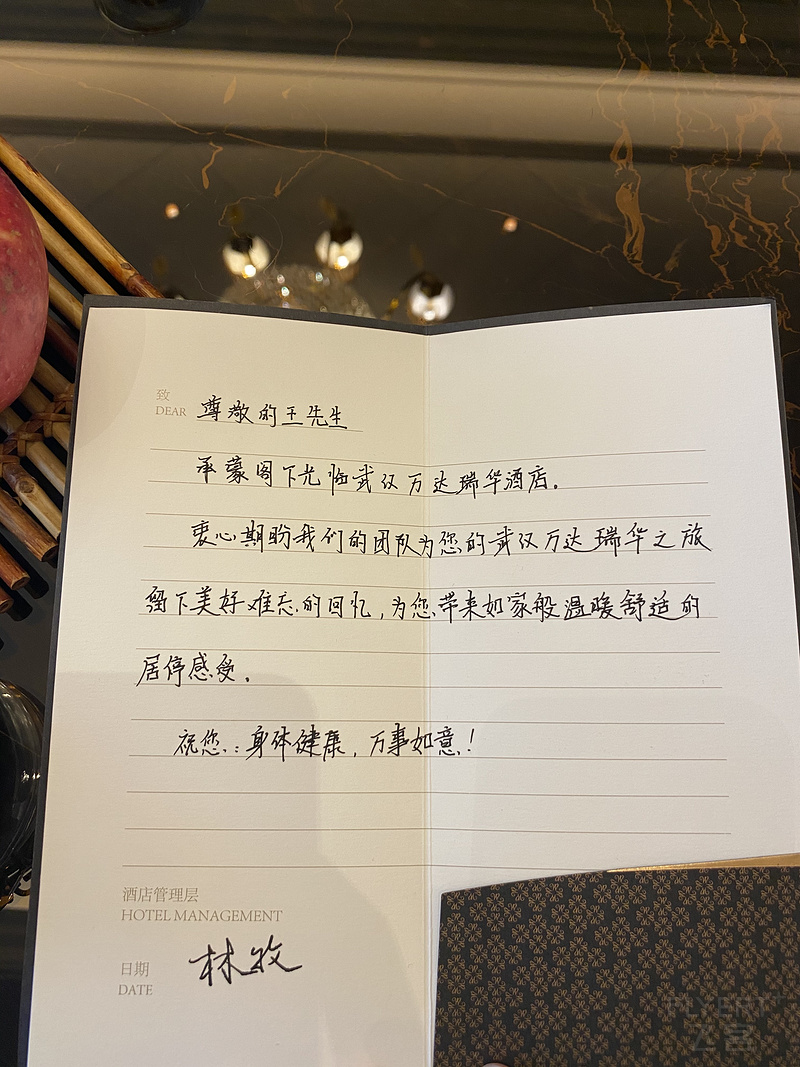 致
DEAR 尊敬的王先生
承蒙阁下光临武汉万达瑞华酒店.
衷心期盼我们的团队为您的武汉万达瑞华之旅
留下美好难忘的回忆,为您带来如家般温暖舒适的
居停感受.
祝您:身体健康,万事如意!
酒店管理层
HOTEL MANAGEMENT
日期
DATE
林牧
FLYERT
飞客